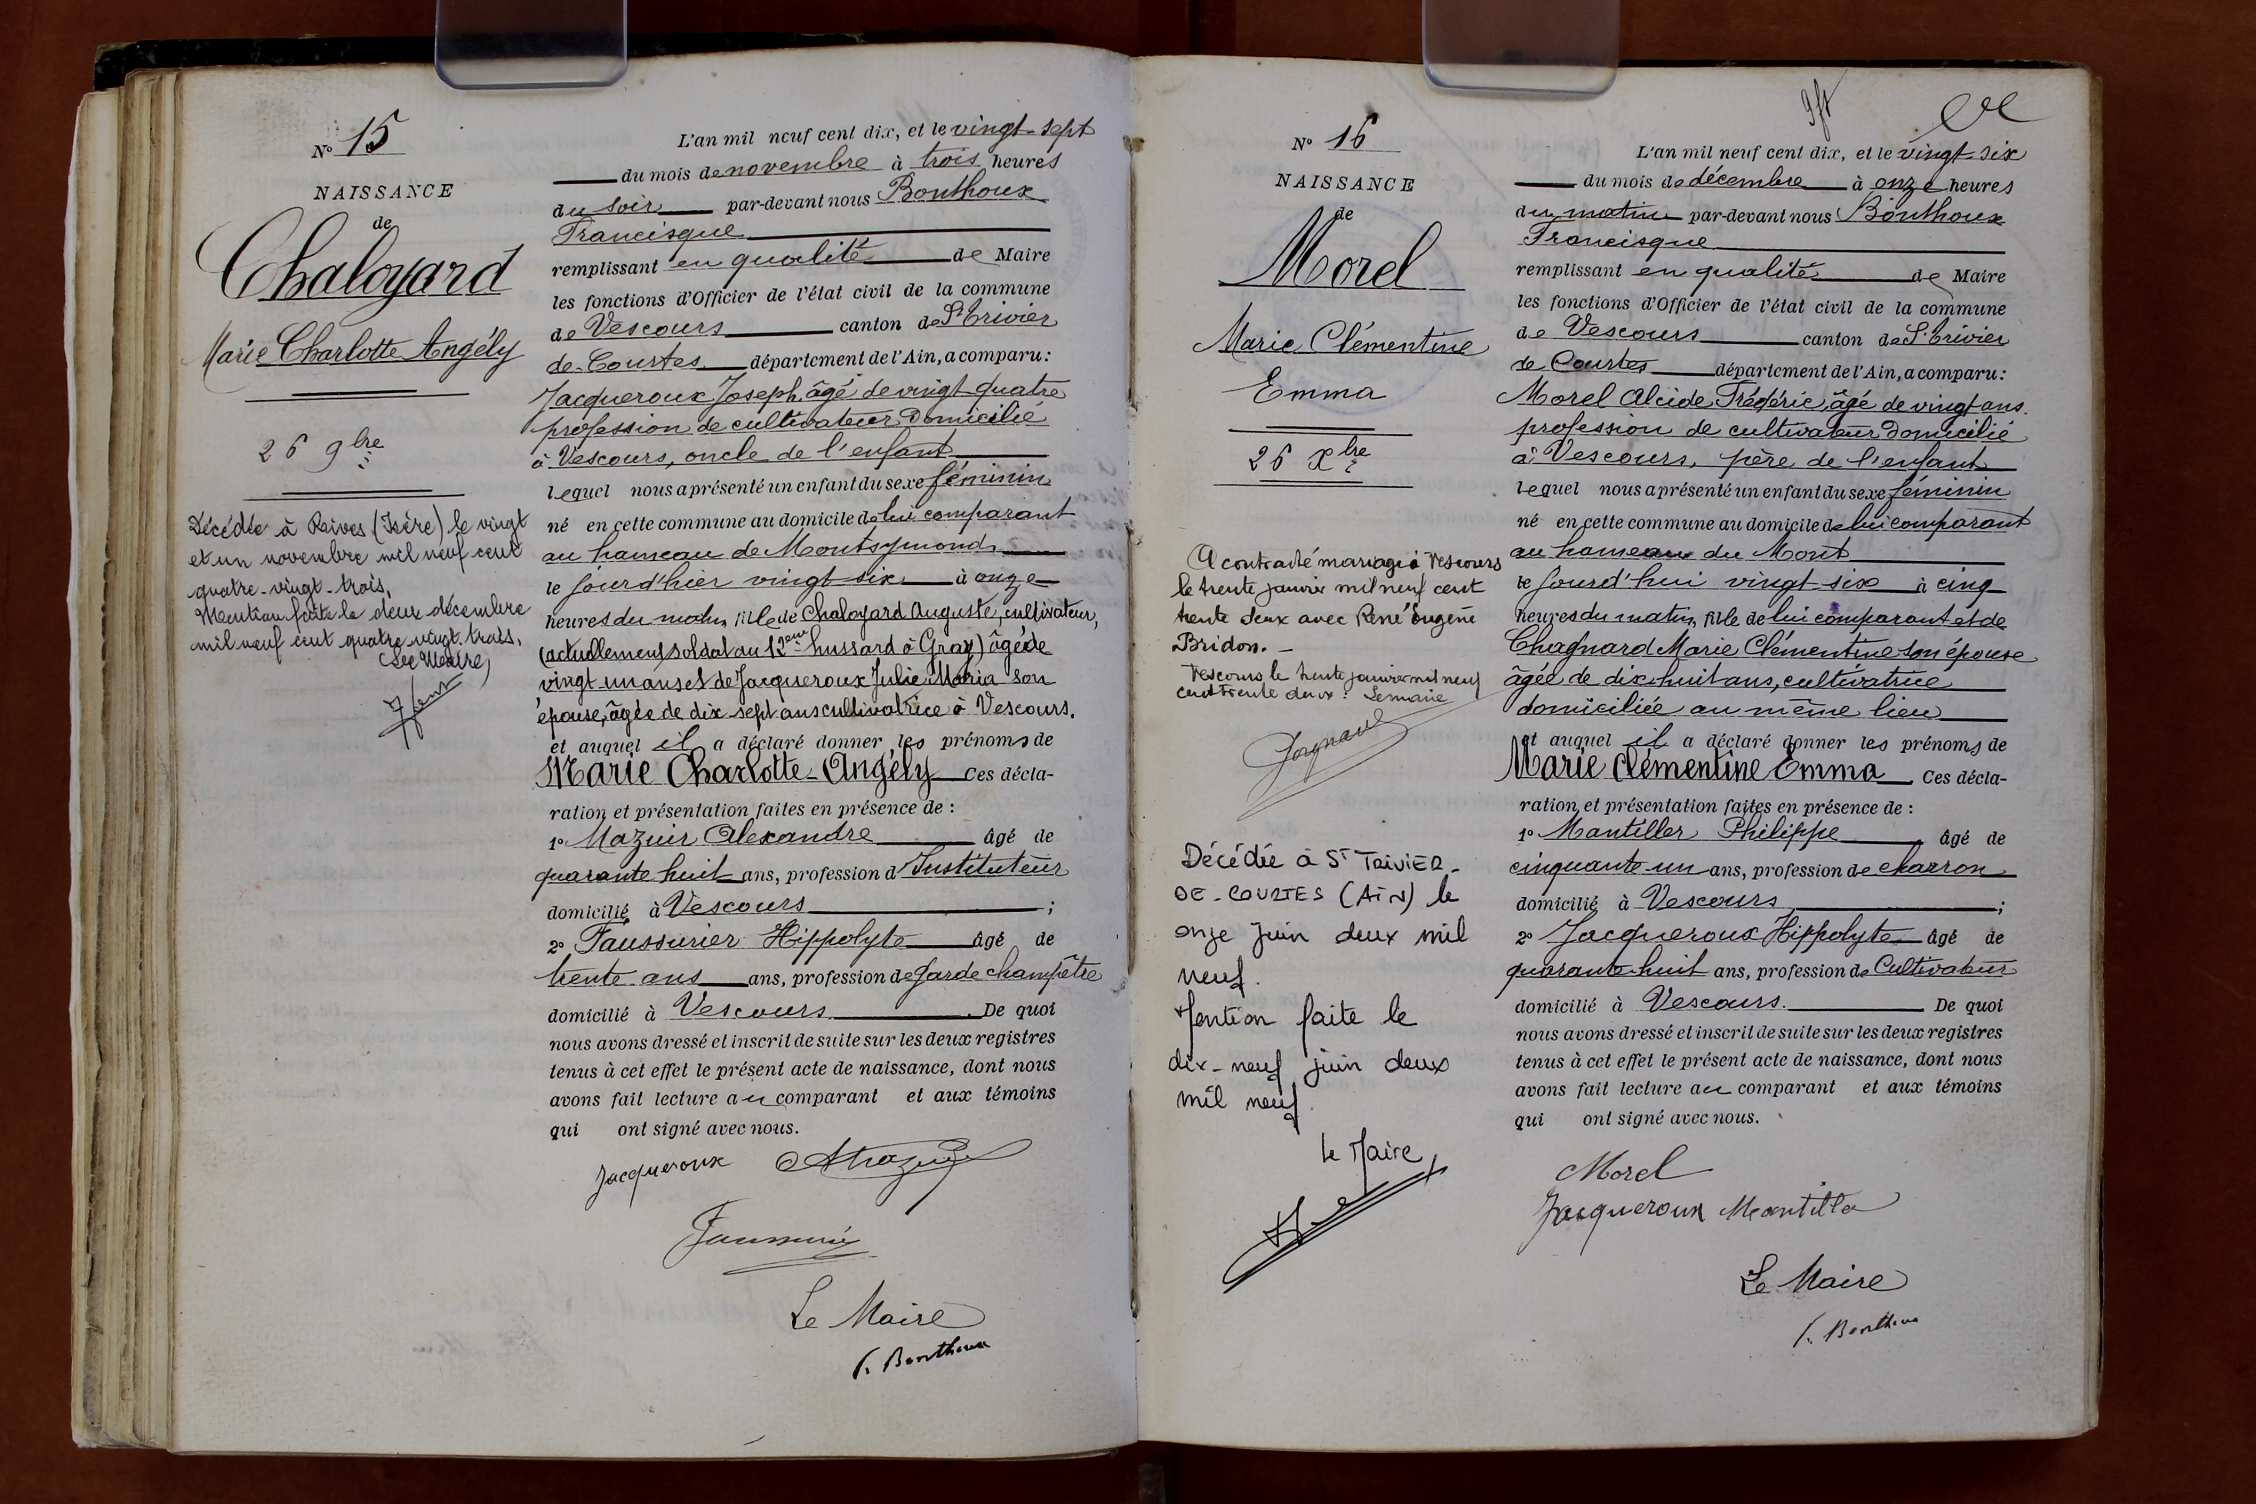 Nº 15
NAISSANCE
de
Chaloyard
Marie Charlotte Angély
26 9bre
Décédée à Rives (Isère) le vingt
et un novembre mil neuf cent
quatre-vingt-trois.
Mention faite le deux décembre
mil neuf cent quatre vingt trois.
Le Maire,
L'an mil neuf cent dix, et le vingt-sept
du mois de novembre à trois heures
du soir par-devant nous Bonthoux
Francisque
remplissant en qualité de Maire
les fonctions d'Officier de l'état civil de la commune
de Vescours canton de St Trivier
de Courtes département de l'Ain, a comparu :
Jacqueroux Joseph, âgé de vingt quatre
profession de cultivateur domicilié
à Vescours, oncle de l'enfant
lequel nous a présenté un enfant du sexe féminin
né en cette commune au domicile de lui comparant
au hameau de Montsymond
le jourd'hier vingt-six à onze
heures du matin, fille de Chaloyard Auguste, cultivateur,
(actuellement soldat au 12eme hussard à Gray) âgé de
vingt-un ans et de Jacqueroux Julie Maria son
épouse, âgée de dix sept ans cultivatrice à Vescours.
et auquel il a déclaré donner les prénoms de
Marie Charlotte-Angély Ces décla-
ration et présentation faites en présence de :
1º Mazuir Alexandre âgé de
quarante huit ans, profession d'Instituteur
domicilié à Vescours ;
2º Faussurier Hippolyte âgé de
trente ans ans, profession de garde champêtre
domicilié à Vescours. De quoi
nous avons dressé et inscrit de suite sur les deux registres
tenus à cet effet le présent acte de naissance, dont nous
avons fait lecture au comparant et aux témoins
qui ont signé avec nous.
Jacqueroux AMazuir
Faussurier
Le Maire
F. Bonthoux
Nº 16
NAISSANCE
de
Morel
Marie Clémentine
Emma
26 Xbre
A contracté mariage à Vescours
le trente janvier mil neuf cent
trente deux avec René Eugène
Bridon. -
Vescours le trente janvier mil neuf
cent trente deux. Le maire
Décédée à ST TRIVIER-
DE-COURTES (AIN) le
onze juin deux mil
neuf.
Mention faite le
dix-neuf juin deux
mil neuf.
Le Maire,
L'an mil neuf cent dix, et le vingt-six
du mois de décembre à onze heures
du matin par-devant nous Bonthoux
Francisque
remplissant en qualité de Maire
les fonctions d'Officier de l'état civil de la commune
de Vescours canton de St Trivier
de Courtes département de l'Ain, a comparu :
Morel Alcide Frédéric, âgé de vingt ans.
profession de cultivateur domicilié
à Vescours, père de l'enfant
lequel nous a présenté un enfant du sexe féminin
né en cette commune au domicile de lui comparant
au hameau du Mont
le jourd'hui vingt-six à cinq
heures du matin, fille de lui comparant et de
Chagnard Marie Clémentine son épouse
âgée de dix-huit ans, cultivatrice
domiciliée au même lieu
et auquel il a déclaré donner les prénoms de
Marie Clémentine Emma Ces décla-
ration et présentation faites en présence de :
1º Mantiller Philippe âgé de
cinquante-un ans, profession de charron
domicilié à Vescours ;
2º Jacqueroux Hippolyte âgé de
quarante-huit ans, profession de Cultivateur
domicilié à Vescours. De quoi
nous avons dressé et inscrit de suite sur les deux registres
tenus à cet effet le présent acte de naissance, dont nous
avons fait lecture au comparant et aux témoins
qui ont signé avec nous.
Morel
Jacqueroux Mantiller
Le Maire
F. Bonthoux